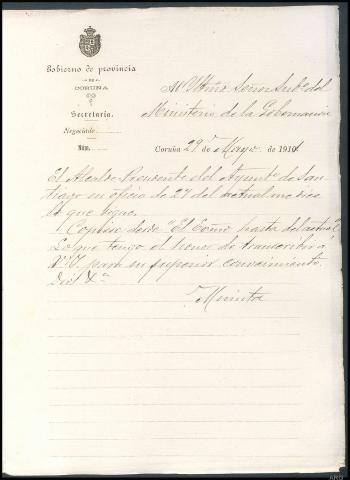 Gobierno de provincia
DE
CORUÑA
Secretaría.
Negociado
Núm.
Al Iltmo Señor Subº del
Ministerio de la Gobernacion
Coruña 29 de Mayo de 1914
El Alcalde Presidente del Ayuntº de San-
tiago en oficio de 27 del actual me dice
lo que sigue.
Copiese desde "El Exmo hasta del actual"
Lo que tengo el honor de transcribir á
V.I. para su superior conocimiento.
Dios &ª
Minuta
ARG